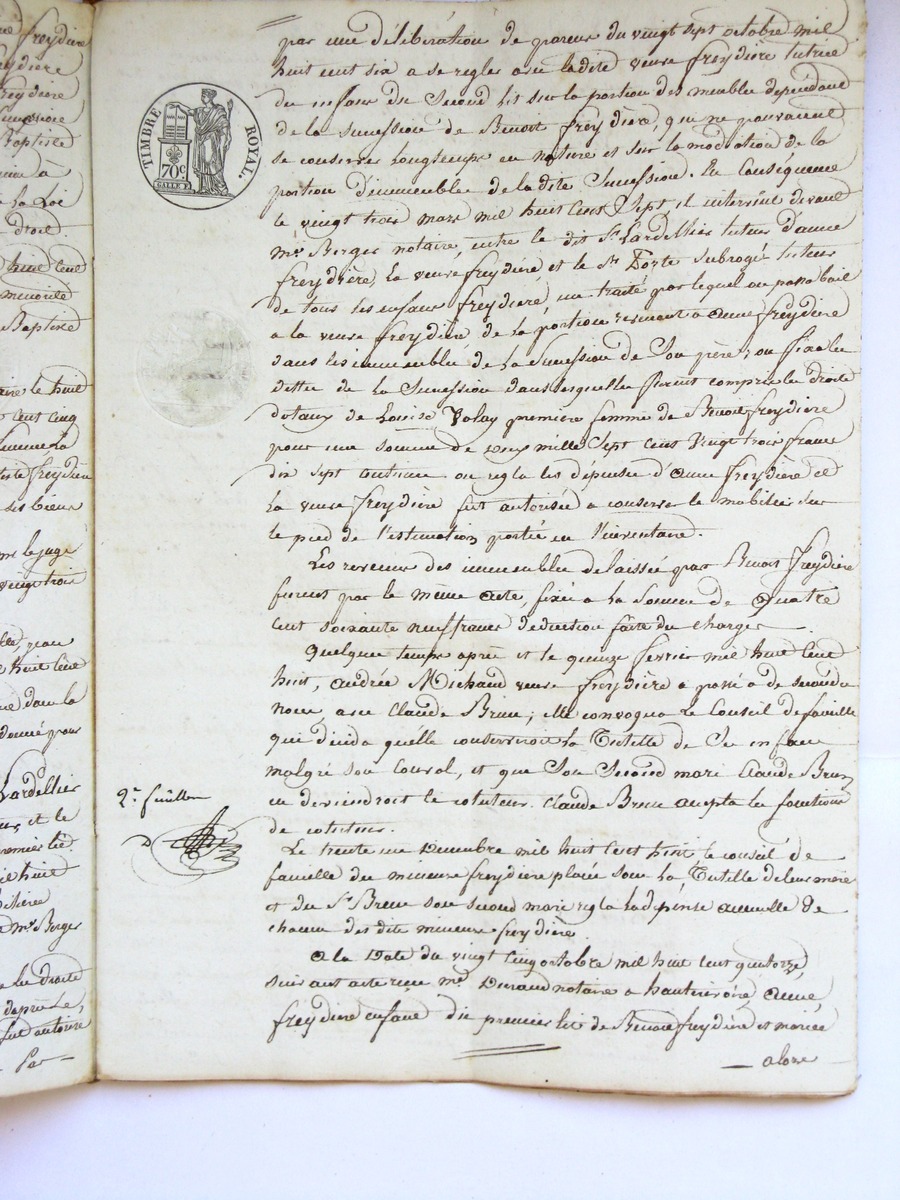 TIMBRE ROYAL.
70c
SALLE
par une délibération de parens du vingt sept octobre mil
huit cent six a se regler avec ladite veuve freydière tutrice
des enfans du Second Lit sur la portion des meubles dépendant
de la succession de Benoit freydière, qui ne pouvaient
se conserver longtemps en nature et sur la portion
d'immeubles de la dite Succession. En Conséquence
le vingt trois mars mil huit Cent Sept il intervint devant
me. Berger notaire, entre le dit Sr. Lardellier tuteur d'anne
freydière, la veuve freydière et le Sr. Dorte Subrogé tuteur
de tous les enfans freydière, un traité par lequel on passa bail
a la veuve freydière, de la portion revenant a anne freydière
dans les immeubles de la Succession de Son père; on fixa les
dettes de la Succession dans lesquelles furent compris les droits
dotaux de Louise Volay première femme de Benoit freydière
pour une somme de mille Sept Cent Vingt trois francs
dix sept centimes on regla les dépenses d'Anne freydière et
la veuve freydière fut autorisée a conserver le mobilier Sur
le pied de l'estimation portée en l'inventaire.
Les revenus des immeubles délaissés par Benoit freydière
furent par le même acte, fixés a la Somme de Quatre
cent soixante neuf francs deduction faite des charges
Quelque temps après et le quinze fevrier mil huit Cent
huit, Andrée Michaud veuve freydière a passé a de secondes
noces avec Claude Brun; elle convoqua le Conseil de famille
qui décida qu'elle conserveroit la Tutelle de Ses enfans
malgré son Convol, et que Son Second mari Claude Brun
en deviendroit le cotuteur. Claude Brun accepta les fonctions
de cotuteur.
2e. feuillet
Le trente un Decembre mil huit Cent huit le conseil de
famille des mineurs freydière placés sous la Tutelle de leur mère
et du Sr. Brun son second mari regla la dépense annuelle de
chacun des dits mineurs freydière.
A la Date du vingt Cinq octobre mil huit Cent quatorze,
suivant acte reçu me. Durand notaire a hauterivoire, Anne,
freydière enfant du premier lit de Benoit freydière et mariée
alors
freydière
Baptiste
à
La Loi
droit
huit Cent
minorité
Baptiste
le huit
Cent Cinq
freydière
ses biens
le juge
vingt trois
huit Cent
dans la
donné pour
Lardellier
et le
premier lit.
huit
me. Berger
les droits
d'après le
fut autorisé
Par